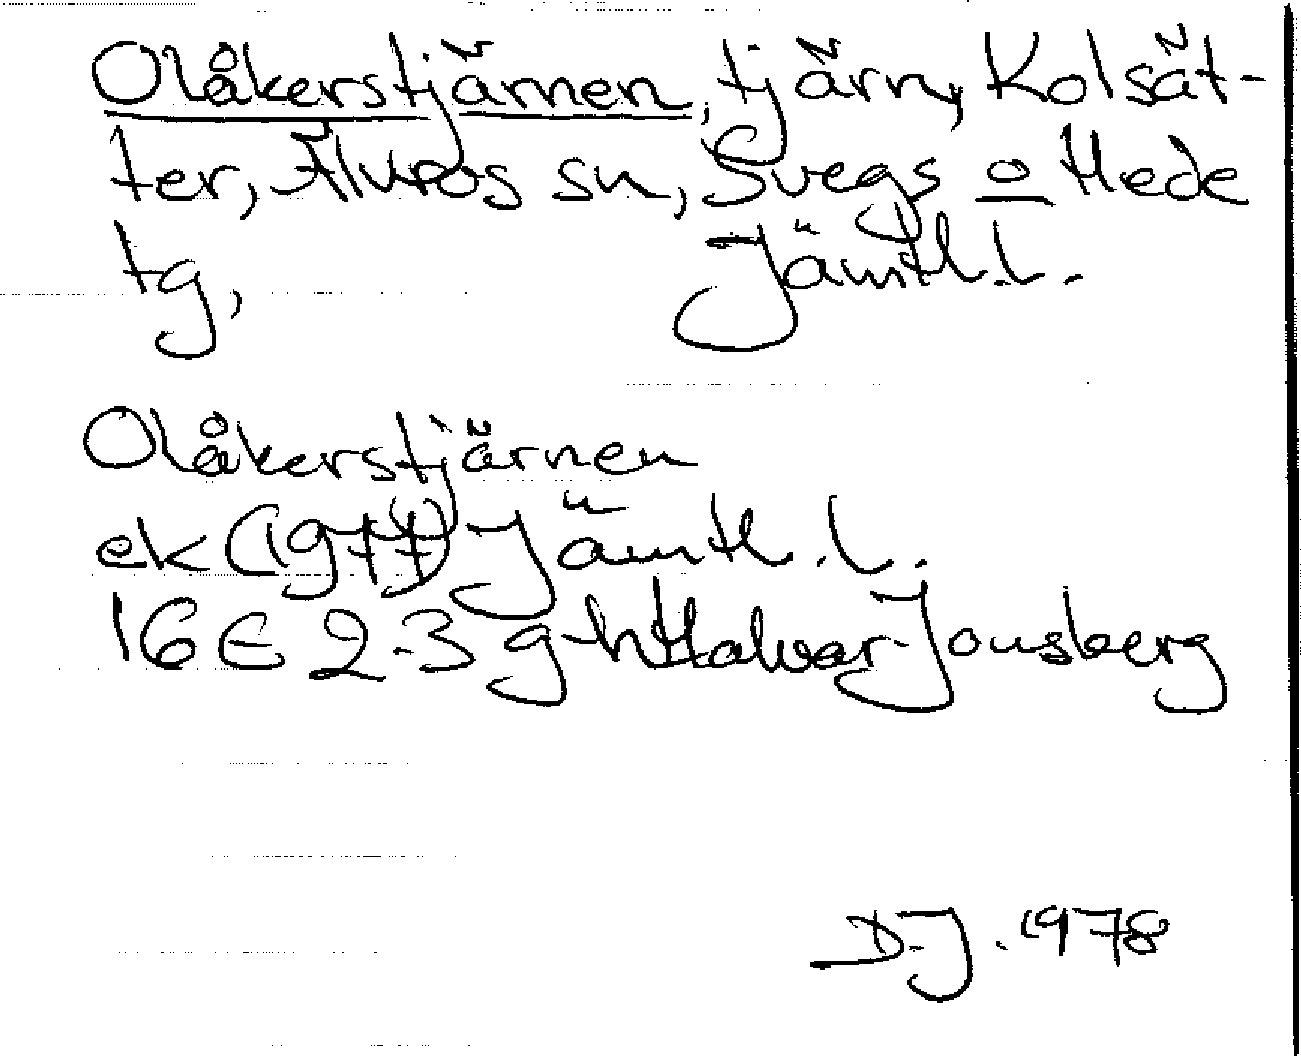 Olåkerstjärnen, tjärn, Kolsät-
ter, Älvros sn, Svegs o Hede
tg, Jämtl. l.
Olåkerstjärnen
ek (1977) Jämtl. l.
16 E 2-3 g-h Halvar Jonsberg
D.J. 1978